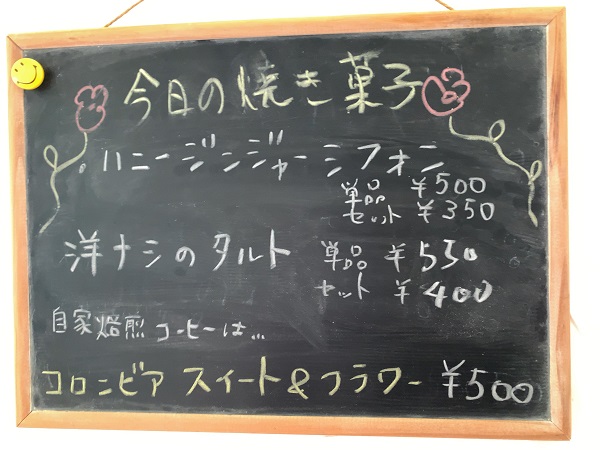 今日の焼き菓子
・ハニージンジャーシフォン
単品 ¥500
セット ¥350
洋ナシのタルト 単品 ¥550
セット ¥400
自家焙煎コーヒーは...
コロンビア スイート&フラワー ¥500